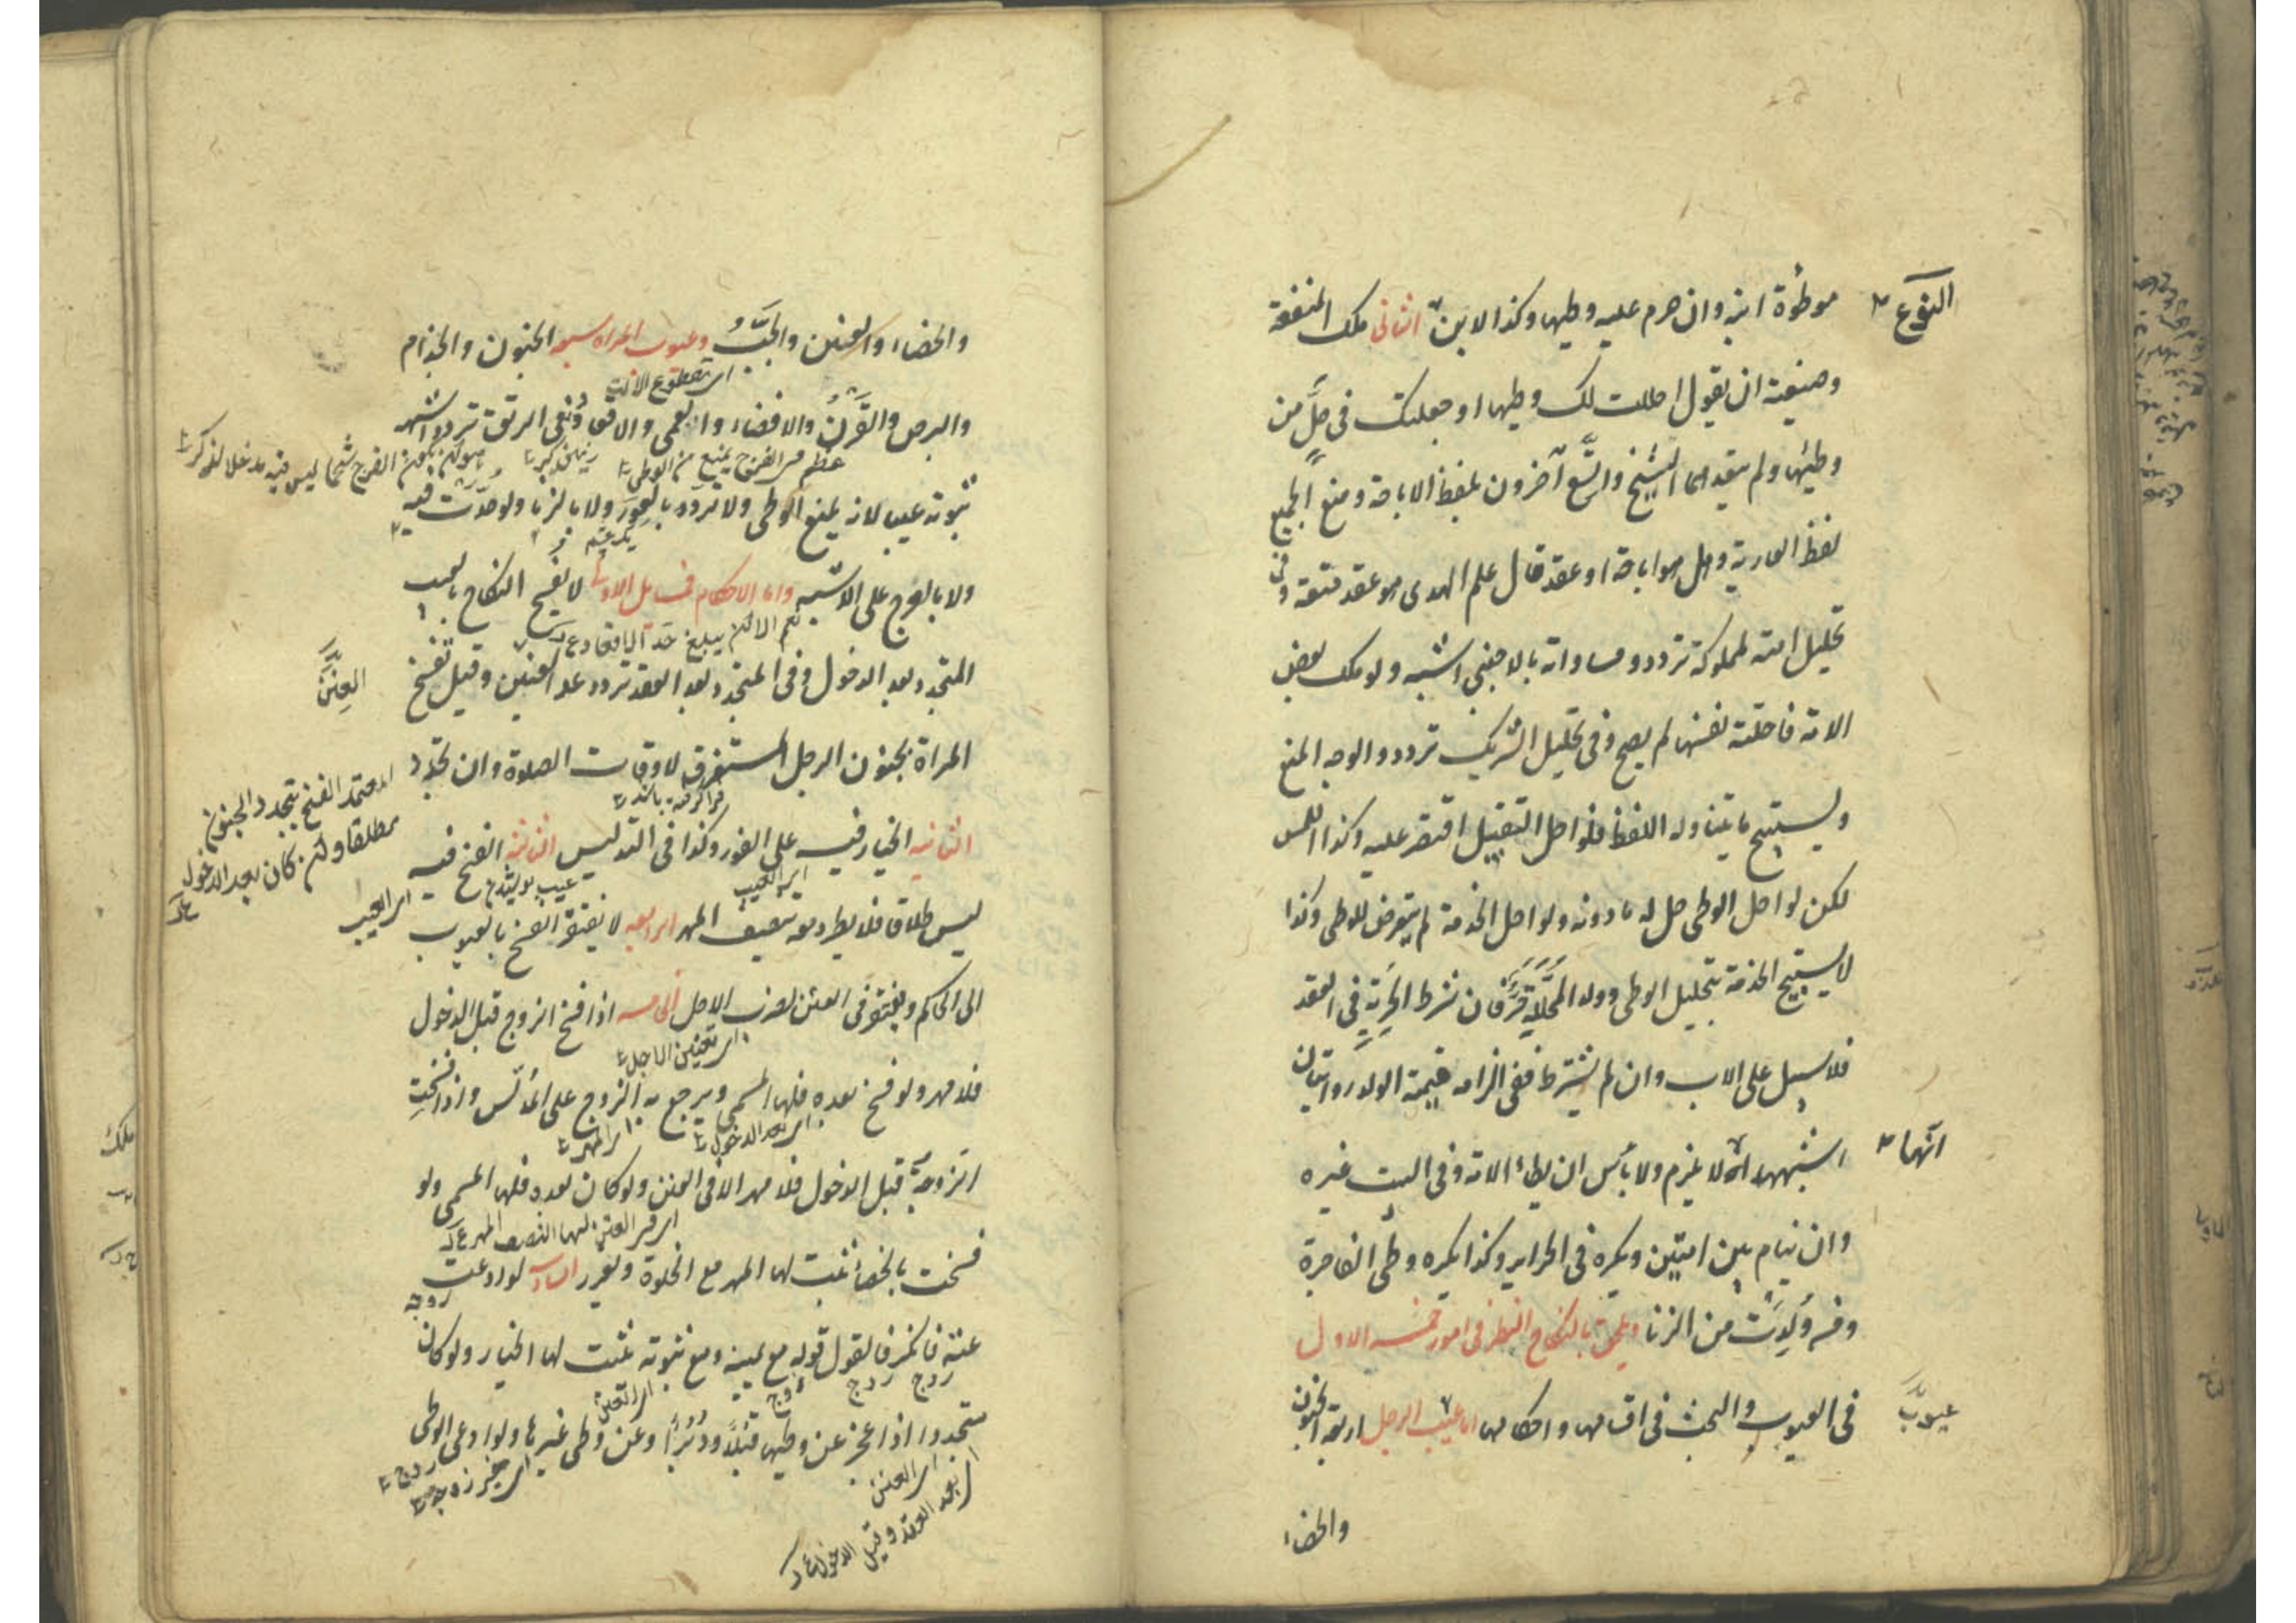 النوع
موطوءة ابنه وان حرم عليه وطيها وكذا الابن الثانى ملك المنفعة
وصيغته ان يقول احللت لك وطيها او جعلتك فى حلٍّ من
وطيها ولم يتعدهما الشيخ واتسّع آخرون بلفظ الاباحة ومنع الجميع
لفظ العارية وهل هو اباحة او عقد قال علم الهدى هو عقد متعة وفى
تحليل امته لمملوكه تردد ومساواته بالاجنبى اشبه ولو ملك بعض
الامة فاحلته نفسها لم يصح وفى تحليل الشريك تردد والوجه المنع
ويستبيح ما يتناوله اللفظ فلو احل التقبيل اقتصر عليه وكذا اللمس
لكن لو احل الوطى حل له ما دونه ولو احل الخدمة لم يتعرض للوطى وكذا
لا يستبيح الخدمة بتحليل الوطى وولد المحلَّلة حُرٌّ فان شرط الحرية فى العقد
فلا سبيل على الاب وان لم يشترط ففى الزامه قيمة الولد روايتان
انّها
اشبههما انه لا يلزم ولا بأس ان يطاء الامة وفى البيت غيره
وان ينام بين امتين ويكره فى الحراير وكذا يكره وطى الفاجرة
ومن وُلِدَتْ من الزنا ويلحق بالنكاح النظر فى امور خمسة الاول
عيوبُ
فى العيوب والبحث فى اقسامها واحكامها اما عيب الرجل اربعة الجنون
والخصاء
والخصاء والعنن والجَبُّ وعيوب المراة سبعة الجنون والجذام
اى مقطوع الآلت
والبرص والقَرَنُ والافضاء والعمى والاقعاد وفى الرتق تردد اشبهه
عظم فى الفرج يمنع من الوطى
ثبوته عيبا لانه يمنع الوطى ولا ترد بالعور ولا بالزنا ولو حدّت فيه
ولا بالعرج على الاشبه واما الاحكام فمسايل الاولى لا يفسخ النكاح بالعيب
نعم الا ان يبلغ حد الاقعاد
العِنَنُ
المتجدد بعد الدخول وفى المتجدد بعد العقد تردد عدا العنن وقيل تفسخ
المراة بجنون الرجل المستغرق لاوقات الصلوة وان تجدد
المعتمد الفسخ بتجدد الجنون
مطلقا ولو كان بعد الدخول
الثانية الخيار فيه على الفور وكذا فى التدليس الثالثة الفسخ فيه
اى العيب
اى العيب
ليس طلاق فلا يطرد معه تنصيف المهر الرابعة لا يفتقر الفسخ بالعيوب
الى الحاكم ويفتقر فى العنن لضرب الاجل الخامسة اذا فسخ الزوج قبل الدخول
اى تعيين الاجل
فلا مهر ولو فسخ بعده فلها المسمى ويرجع به الزوج على المدلّس واذا فسختِ
اى بعد الدخول
اى المهر
الزوجةُ قبل الدخول فلا مهر الا فى العنن ولو كان بعده فلها المسمى ولو
اى فى العنن لها النصف المهر
فسخت بالخصاء ثبت لها المهر مع الخلوة ويعزر السادسة لو ادعت
زوجه
عننه فانكر فالقول قوله مع يمينه ومع ثبوته يثبت لها الخيار ولو كان
زوج
زوج
زوج
اى العنن
متجددا اذا عجز عن وطيها قبُلًا ودُبُرًا وعن وطى غيرها ولو ادعى الوطى
زوج
اى غير زوجه
اى العنن
اى بعد العقد وقبل الدخول